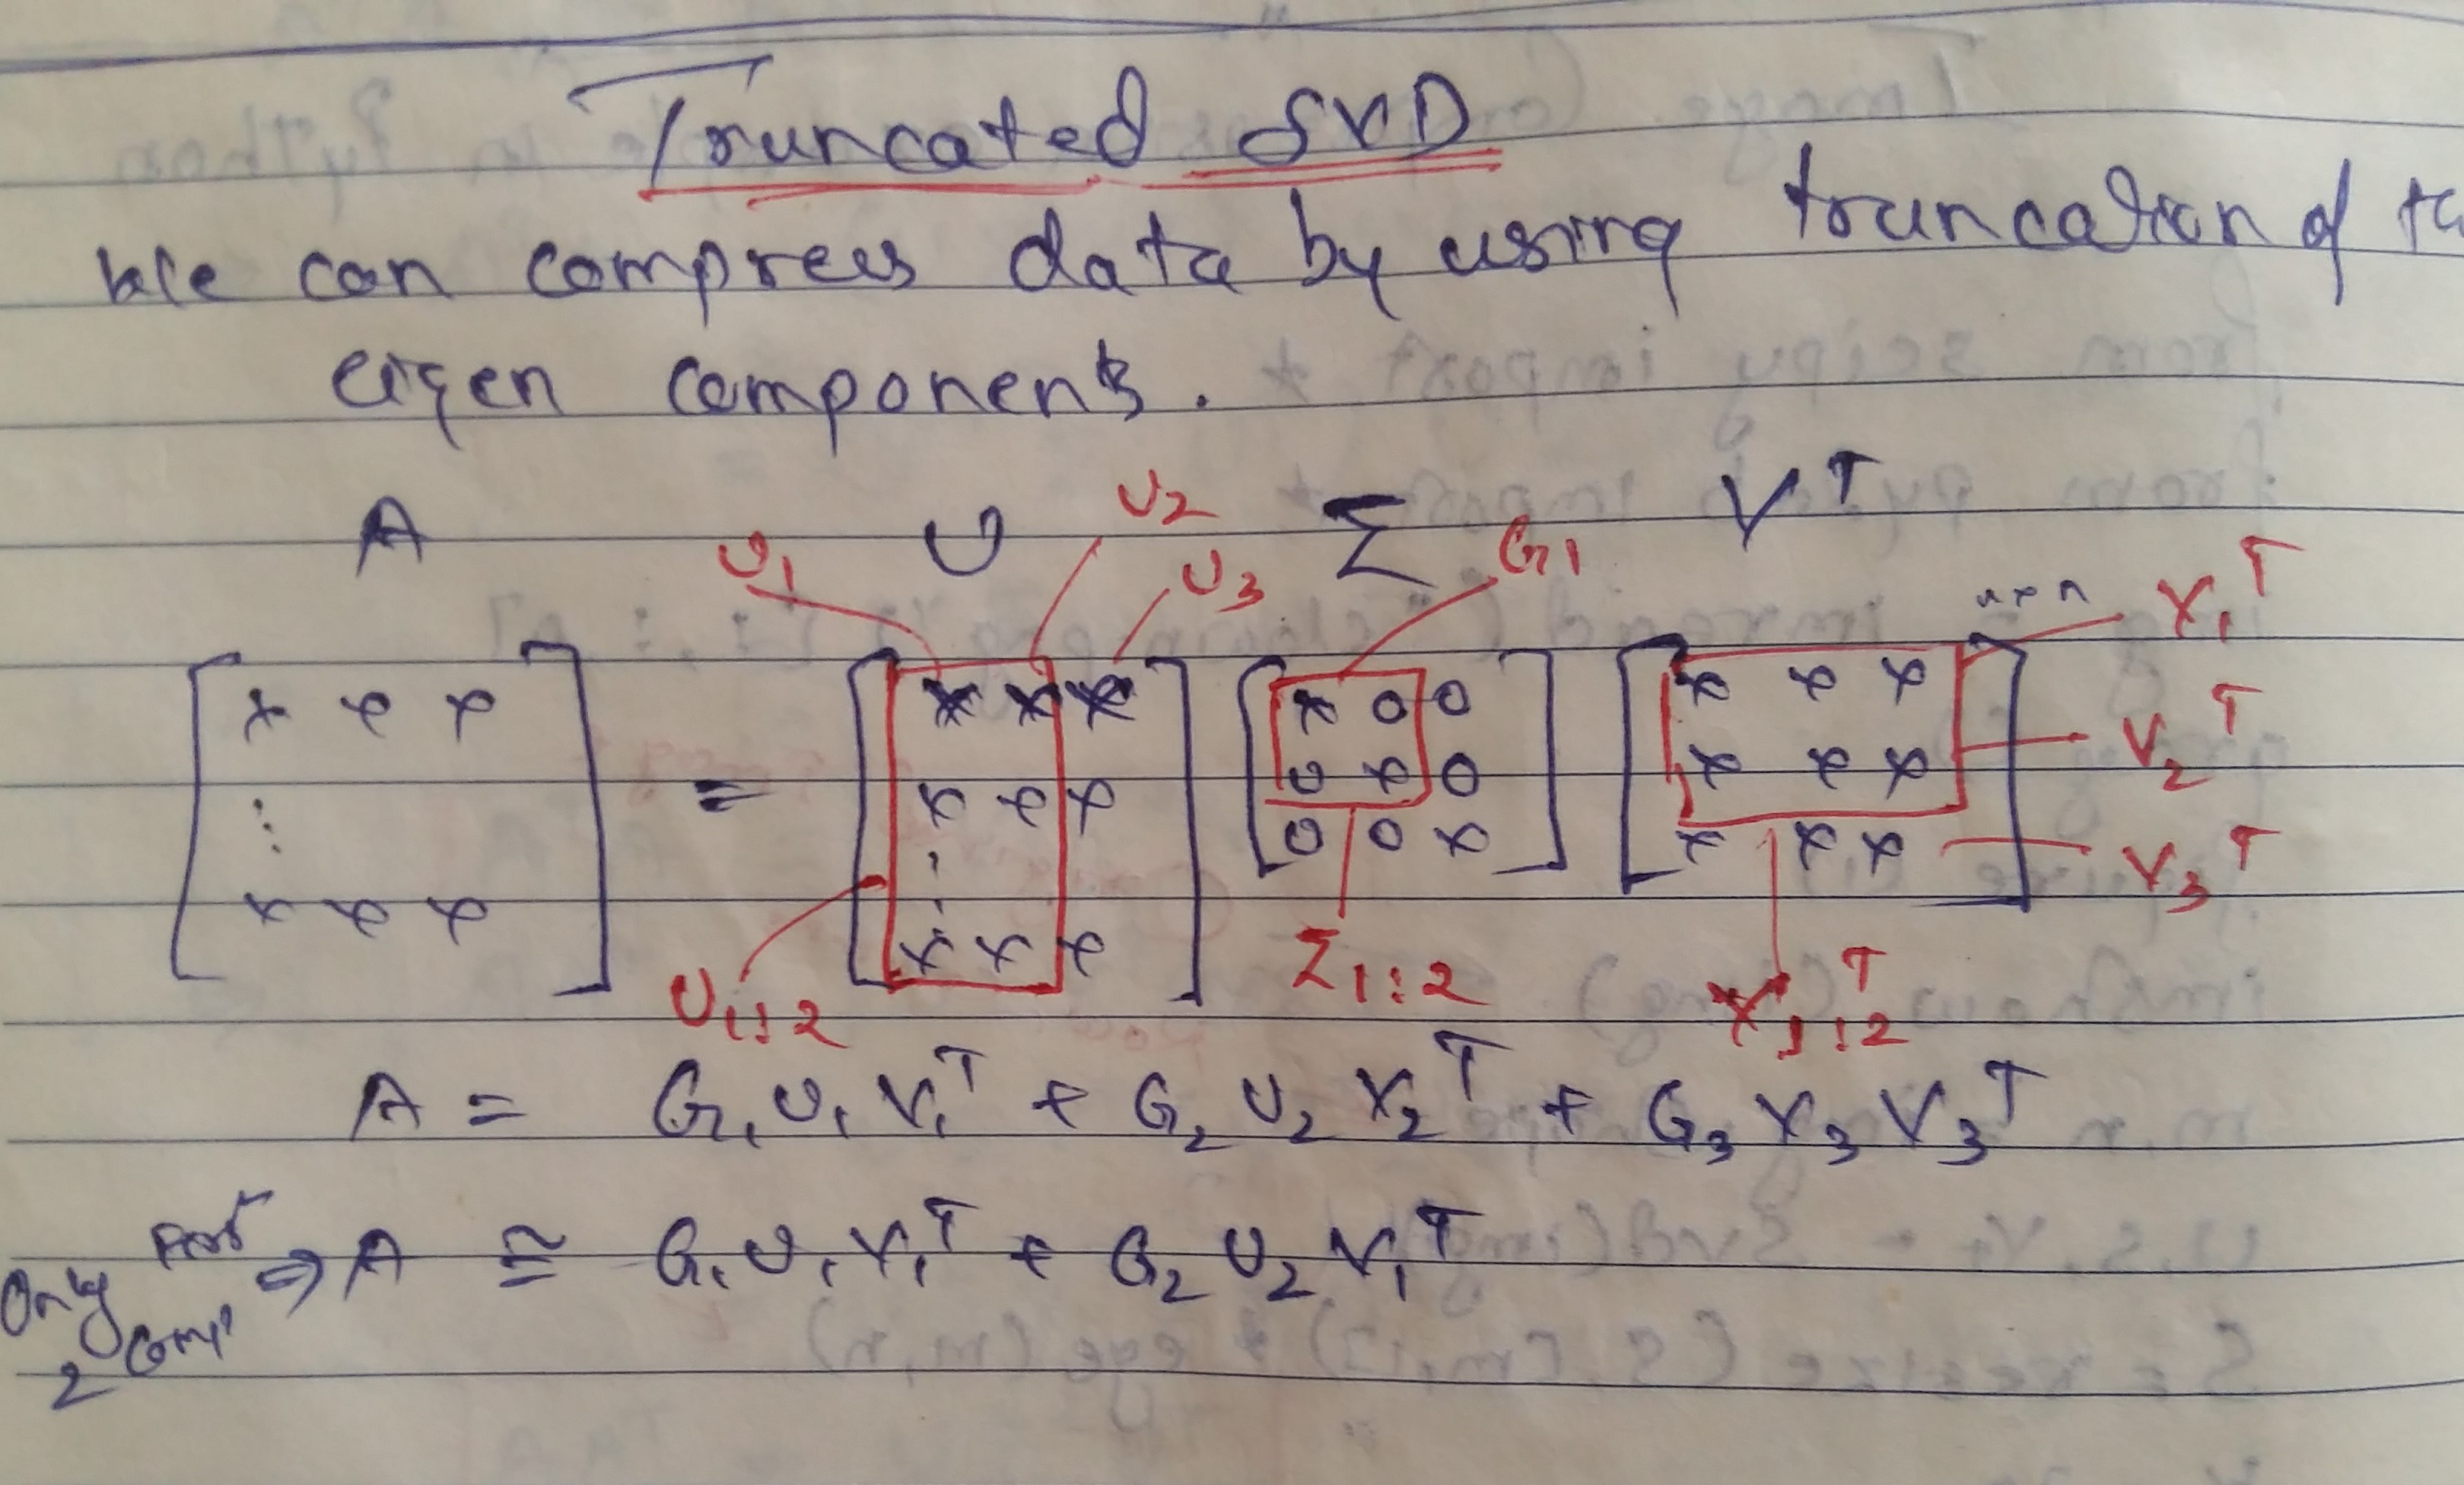 Truncated SVD
We can compress data by using truncation of
eigen components.
A U Σ V^T
U1 U2 U3 G1 n×n V1^T
[ x x x ] = [ x x x ] [ x 0 0 ] [ x x x ] V2^T
⋮ x x x 0 x 0 x x x
⋮ 0 0 x x x x V3^T
x x x x x x
U1:2 Σ1:2 V1:2^T
A = G1 U1 V1^T + G2 U2 V2^T + G3 V3 V3^T
Only for 2 comp ⇒ A ≅ G1 U1 V1^T + G2 U2 V1^T